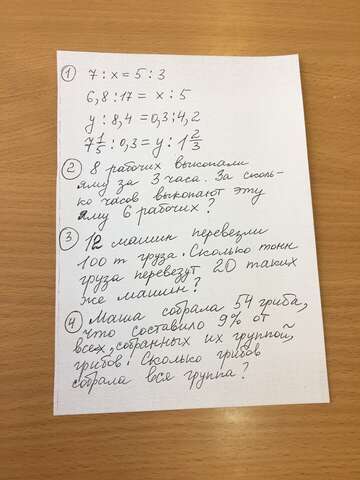 ① 7 : x = 5 : 3
6,8 : 17 = x : 5
y : 8,4 = 0,3 : 4,2
7 1/5 : 0,3 = y : 1 2/3
② 8 рабочих выкопали
яму за 3 часа. За сколь-
ко часов выкопают эту
яму 6 рабочих?
③ 12 машин перевезли
100 т груза. Сколько тонн
груза перевезут 20 таких
же машин?
④ Маша собрала 54 гриба,
что составило 9% от
всех, собранных их группой,
грибов. Сколько грибов
собрала вся группа?